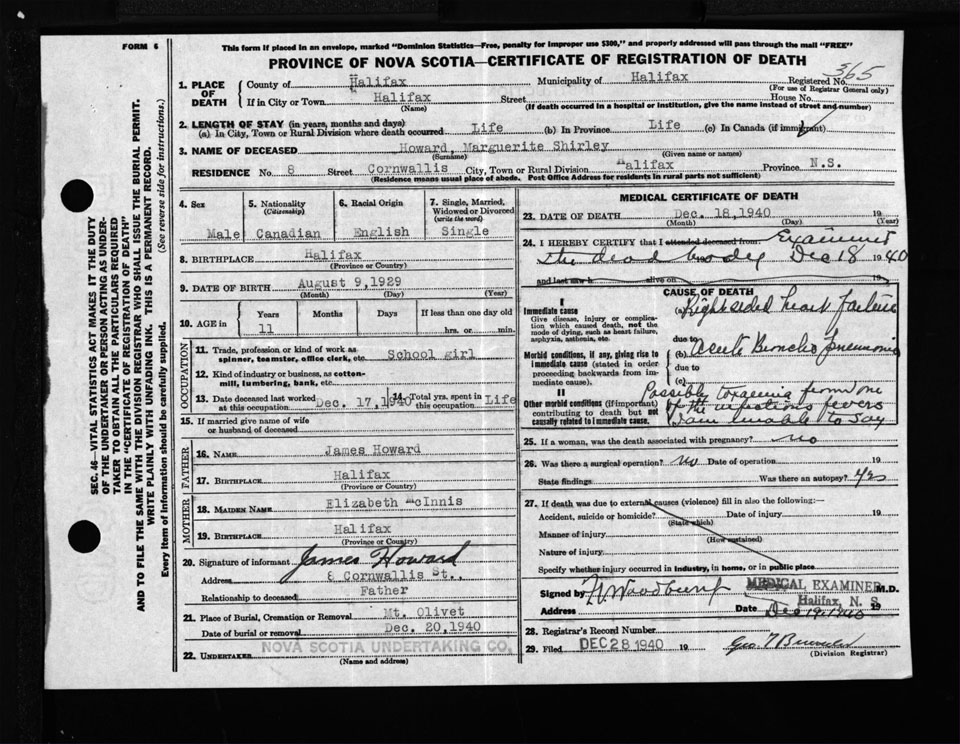 FORM 6
This form if placed in an envelope, marked "Dominion Statistics—Free, penalty for improper use $300," and properly addressed will pass through the mail "FREE"
PROVINCE OF NOVA SCOTIA—CERTIFICATE OF REGISTRATION OF DEATH
365
1. PLACE OF DEATH
County of Halifax Municipality of Halifax Registered No.
(For use of Registrar General only)
If in City or Town Halifax Street House No.
(Name) (If death occurred in a hospital or institution, give the name instead of street and number)
2. LENGTH OF STAY (in years, months and days)
(a) In City, Town or Rural Division where death occurred Life (b) In Province Life (c) In Canada (if immigrant)
3. NAME OF DECEASED Howard, Marguerite Shirley
(Surname) (Given name or names)
RESIDENCE No. 8 Street Cornwallis City, Town or Rural Division Halifax Province N.S.
(Residence means usual place of abode. Post Office Address for residents in rural parts not sufficient)
4. Sex
Male
5. Nationality
(Citizenship)
Canadian
6. Racial Origin
English
7. Single, Married, Widowed or Divorced
(write the word)
Single
8. BIRTHPLACE Halifax
(Province or Country)
9. DATE OF BIRTH August 9,1929
(Month) (Day) (Year)
10. AGE in
Years Months Days If less than one day old
11
hrs. or min.
OCCUPATION
11. Trade, profession or kind of work as spinner, teamster, office clerk, etc. School girl
12. Kind of industry or business, as cotton-mill, lumbering, bank, etc.
13. Date deceased last worked at this occupation Dec. 17,1940
14. Total yrs. spent in this occupation Life
15. If married give name of wife or husband of deceased
FATHER
16. NAME James Howard
17. BIRTHPLACE Halifax
(Province or Country)
MOTHER
18. MAIDEN NAME Elizabeth McInnis
19. BIRTHPLACE Halifax
(Province or Country)
20. Signature of informant James Howard
Address 8 Cornwallis St.,
Relationship to deceased Father
21. Place of Burial, Cremation or Removal Mt. Olivet
Date of burial or removal Dec. 20,1940
22. UNDERTAKER NOVA SCOTIA UNDERTAKING CO.
(Name and address)
MEDICAL CERTIFICATE OF DEATH
23. DATE OF DEATH Dec. 18,1940 19
(Month) (Day) (Year)
24. I HEREBY CERTIFY that I attended deceased from Examined
the dead body Dec 18 1940
and last saw h alive on 19
CAUSE OF DEATH
I
Immediate cause
Give disease, injury or complication which caused death, not the mode of dying, such as heart failure, asphyxia, asthenia, etc.
(a) Right sided heart failure
due to
Morbid conditions, if any, giving rise to immediate cause (stated in order proceeding backwards from immediate cause).
(b) acute Broncho pneumonia
due to
(c)
II
Other morbid conditions (if important) contributing to death but not causally related to immediate cause.
Possibly toxaemia from one
of the infectious fevers
I am unable to say
25. If a woman, was the death associated with pregnancy? no
26. Was there a surgical operation? no Date of operation 19
State findings Was there an autopsy? yes
27. If death was due to external causes (violence) fill in also the following:—
Accident, suicide or homicide? Date of injury 19
(State which)
Manner of injury
(How sustained)
Nature of injury
Specify whether injury occurred in industry, in home, or in public place
Signed by Woodbury M.D.
MEDICAL EXAMINER
Halifax, N. S.
Address Date Dec 19, 1940 19
28. Registrar's Record Number
29. Filed DEC 28 1940 19
(Division Registrar)
SEC. 46—VITAL STATISTICS ACT MAKES IT THE DUTY
OF THE UNDERTAKER OR PERSON ACTING AS UNDER-
TAKER TO OBTAIN ALL THE PARTICULARS REQUIRED
IN THE "CERTIFICATE OF REGISTRATION OF DEATH"
AND TO FILE THE SAME WITH THE DIVISION REGISTRAR WHO SHALL ISSUE THE BURIAL PERMIT.
WRITE PLAINLY WITH UNFADING INK. THIS IS A PERMANENT RECORD.
Every item of information should be carefully supplied. (See reverse side for instructions.)